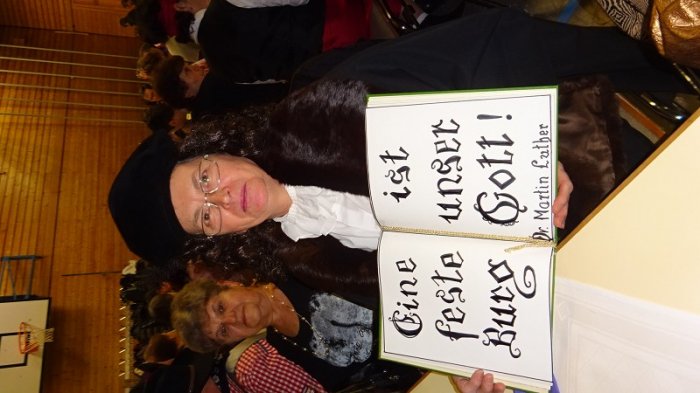 Eine
feste
Burg
ist
unser
Gott!
Dr Martin Luther